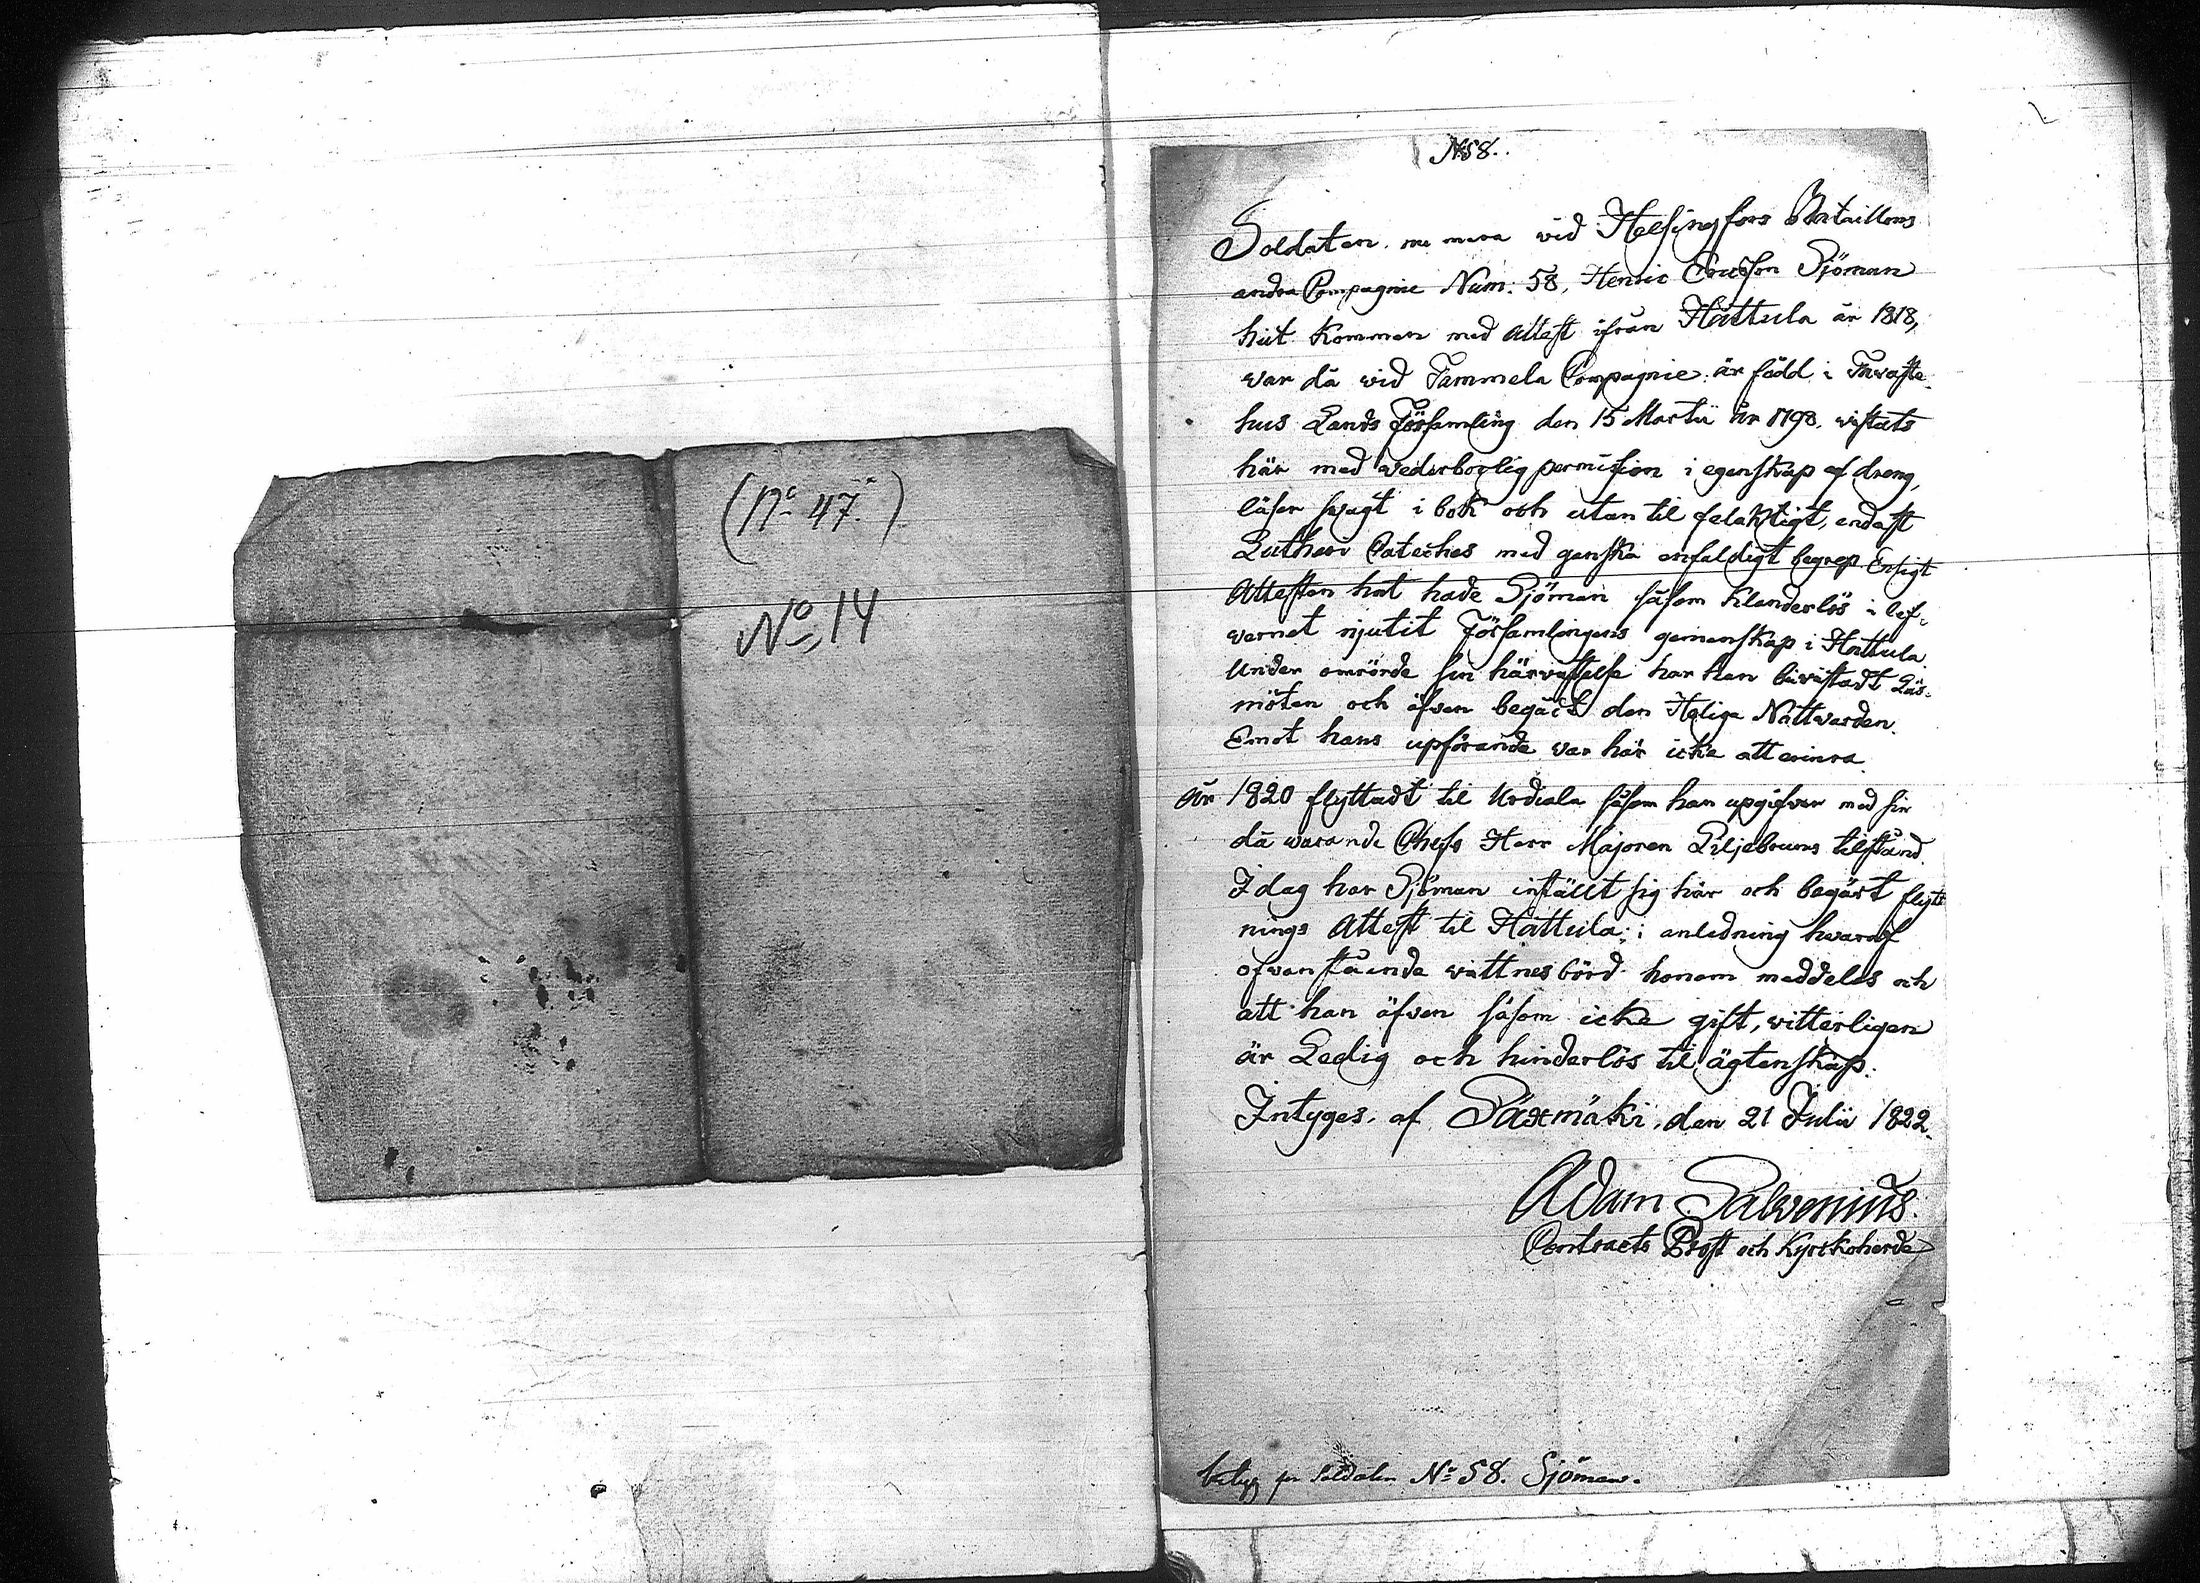 (No 47.)
No 14
No 58.
Soldaten nu mera vid Helsingfors Bataillons
andra Compagnie Num: 58, Henric Ericsson Sjöman
hit kommen med attest ifrån Hattula år 1818,
var då wid Tammela Compagnie: är född i Tavaste
hus Lands Församling den 15 Martii År 1798. vistats
här med wederbörlig permission i egenskap af dreng,
läser svagt i bok och utan til felaktigt, endast
Lutheri Cateches med ganska enfaldigt begrep. Enligt
Attesten hade Sjöman såsom klanderlös i lef-
vernet njutit Församlingens gemenskap i Hattula
Under omrörde sin härvistelse har han bivistadt Läs-
möten och äfven begått den Heliga Nattvarden.
Emot hans upförande var här icke att erinra.
År 1820 flyttadt til Urdiala såsom han upgifver med sin
då warande Chefs Herr Majoren Liljebruns tilstånd.
I dag har Sjöman instält sig här och begärt flytt
nings Attest til Hattula; i anledning hwaraf
ofwanstående wittnesbörd honom meddeles och
att han äfven såsom icke gift, witterligen
är Ledig och hinderlös til ägtenskap.
Intyges. af Sáxmäki, den 21 Julii 1822.
Adam Salvenius.
Contracts Prost och Kyrkoherde
betyg för Soldaten No 58. Sjöman.